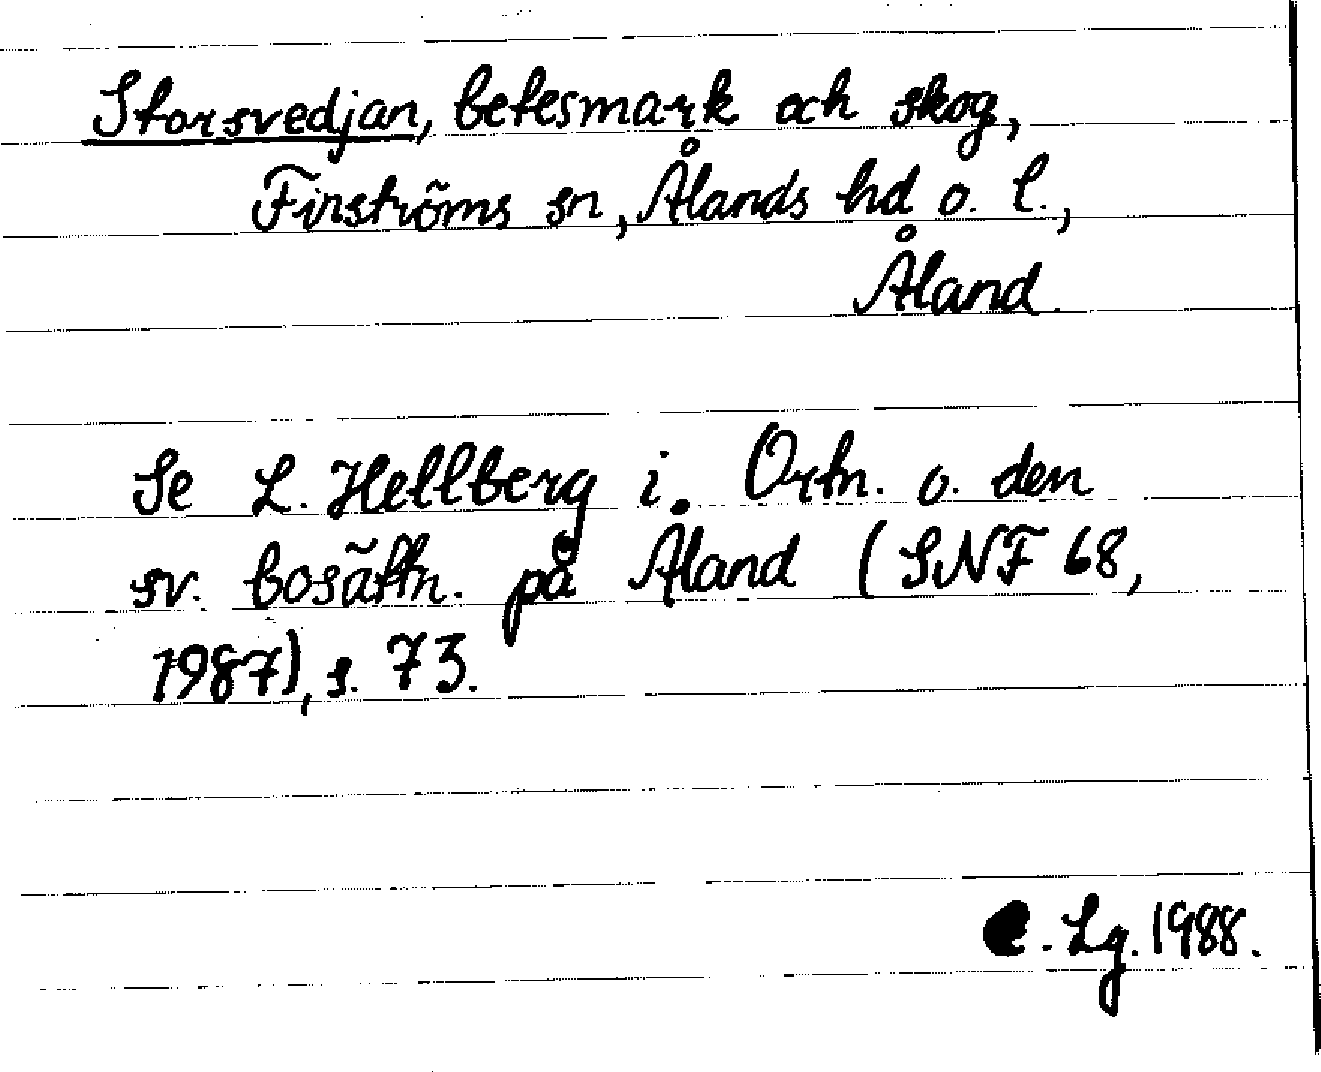 Storsvedjan, betesmark och skog,
Finströms sn, Ålands hd o. l.,
Åland.
Se L. Hellberg i Ortn. o. den
sv. bosättn. på Åland (SNF 68,
1987), s. 73.
e. Lg. 1988.